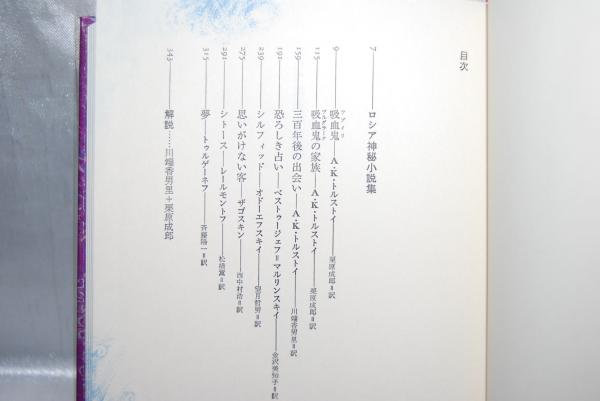 目次
7——ロシア神秘小説集
9——吸血鬼——A・K・トルストイ——栗原成郎=訳
ウプイリ
115——吸血鬼の家族——A・K・トルストイ——栗原成郎=訳
ヴルダラーク
159——三百年後の出会い——A・K・トルストイ——川端香男里=訳
191——恐ろしき占い——ベストゥージェフ=マルリンスキイ——金沢美知子=訳
239——シルフィッド——オドーエフスキイ——望月哲男=訳
275——思いがけない客——ザゴスキン——西中村浩=訳
291——シトース——レールモントフ——松下=訳
315——夢——トゥルゲーネフ——斉藤陽一=訳
343——解説……川端香男里+栗原成郎